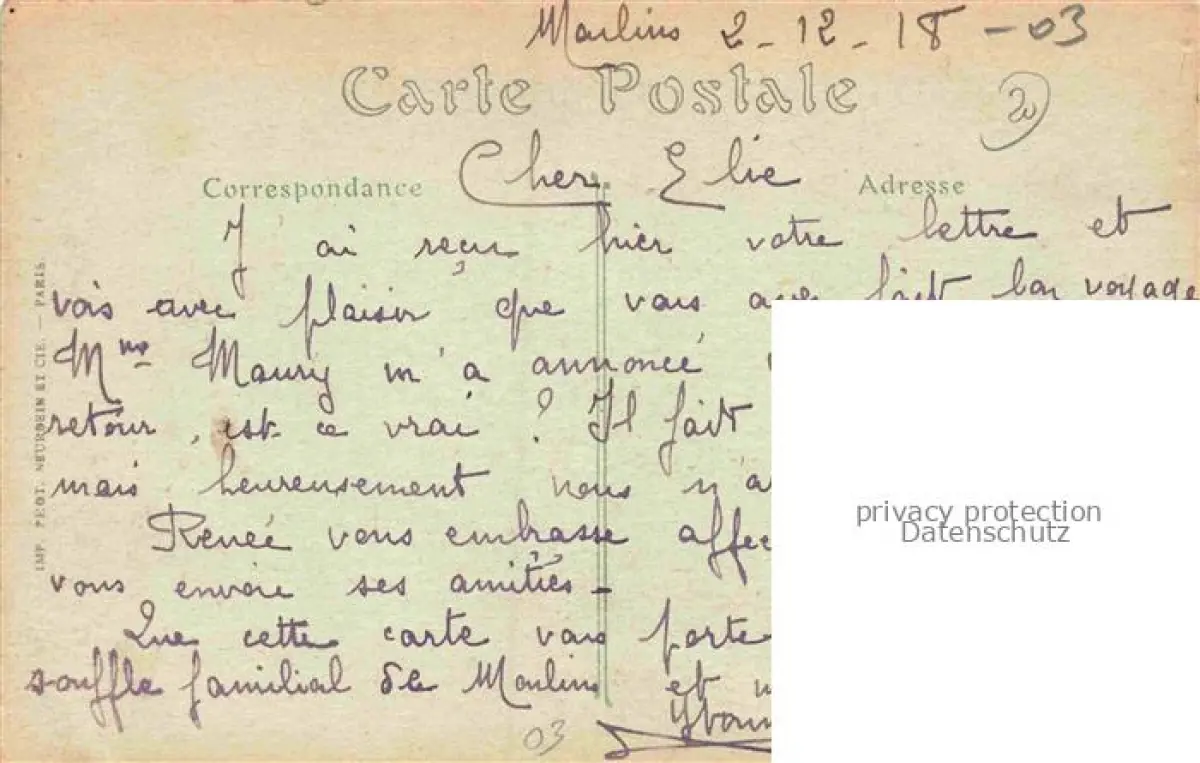 Moulins 2-12-18 - 03
Carte Postale
20
Cher Elie
Correspondance
Adresse
J'ai reçu hier votre lettre et
vois avec plaisir que vous avez fait bon voyage
Mme Maury m'a annoncé
retour, est ce vrai ? Il fait
mais heureusement nous n'a
Renée vous embrasse affec
vous envoie ses amitiés -
Que cette carte vous porte
souffle familial de Moulins et
Yvonn
03
IMP. PHOT. NEURDEIN ET CIE. — PARIS.
privacy protection
Datenschutz